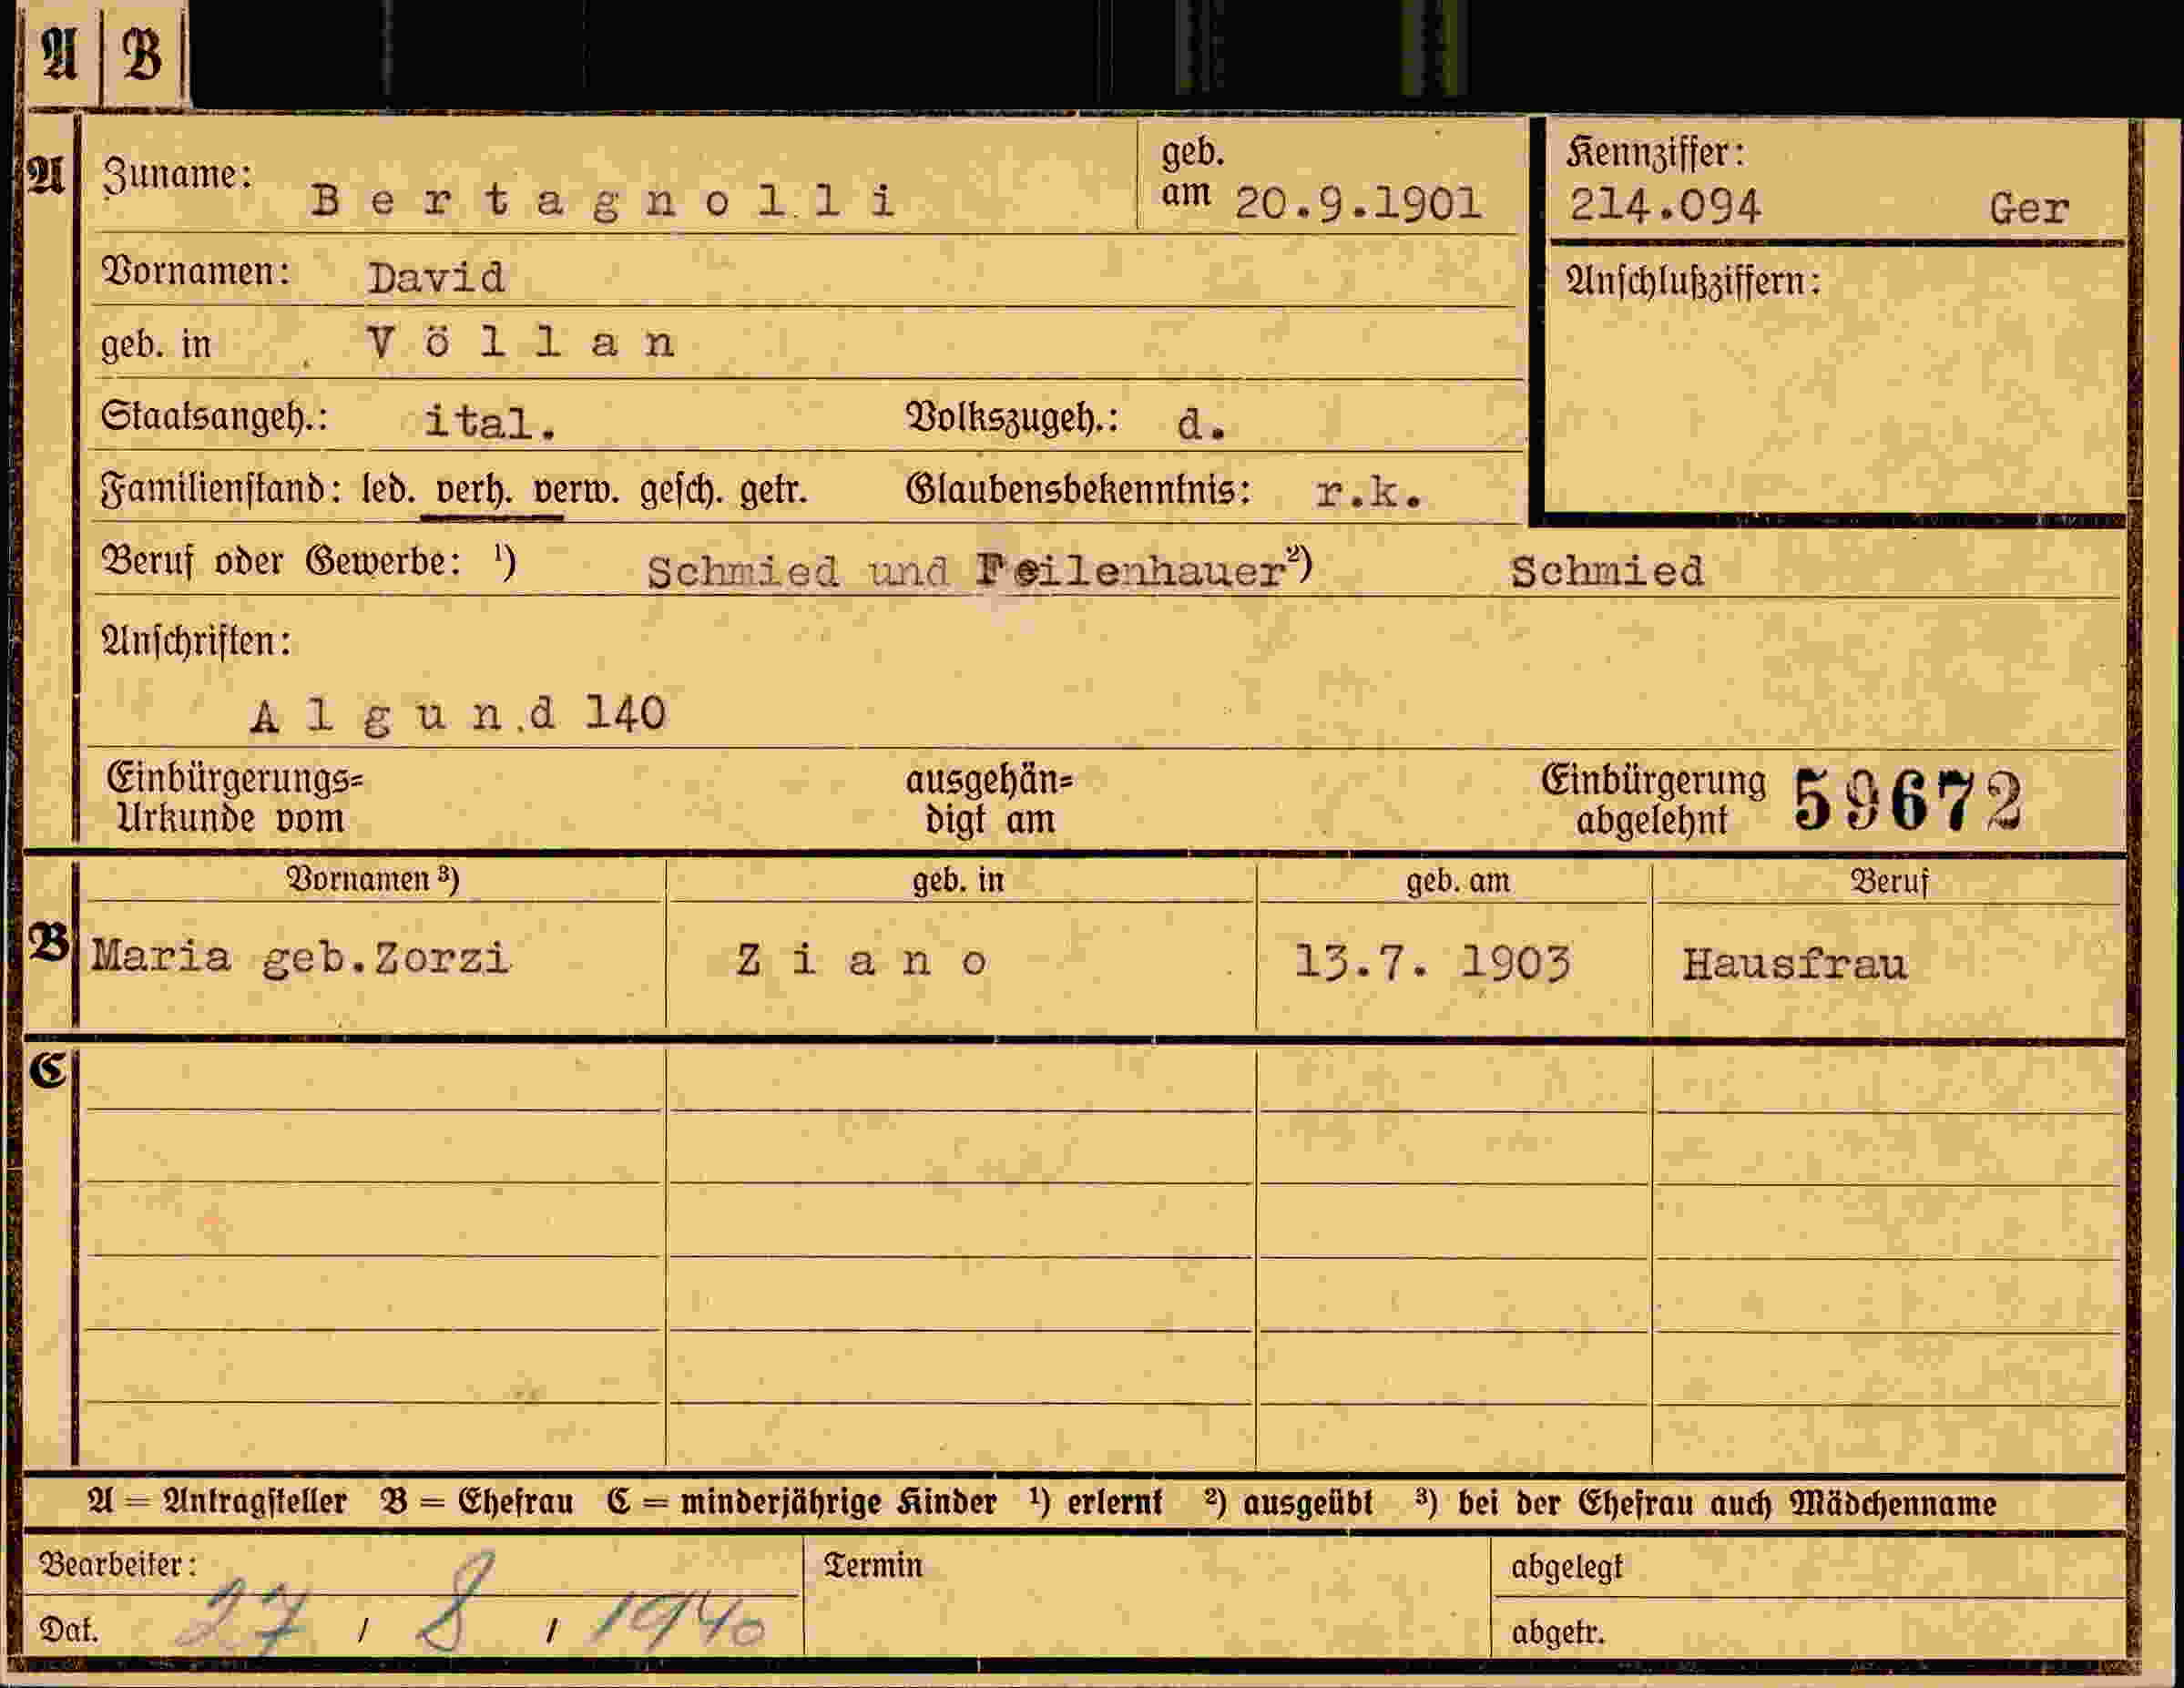 A B
A Zuname: Bertagnolli geb. am 20.9.1901 Kennziffer: 214.094 Ger
Vornamen: David Anschlußziffern:
geb. in Völlan
Staatsangeh.: ital. Volkszugeh.: d.
Familienstand: led. verh. verw. gesch. getr. Glaubensbekenntnis: r.k.
Beruf oder Gewerbe: ¹) Schmied und Feilenhauer ²) Schmied
Anschriften:
Algund 140
Einbürgerungs= ausgehän= Einbürgerung 59672
Urkunde vom digt am abgelehnt
Vornamen ³) geb. in geb. am Beruf
B Maria geb.Zorzi Ziano 13.7. 1903 Hausfrau
C
A = Antragsteller B = Ehefrau C = minderjährige Kinder ¹) erlernt ²) ausgeübt ³) bei der Ehefrau auch Mädchenname
Bearbeiter: Termin abgelegt
Dat. 27 / 8 / 1940 abgetr.